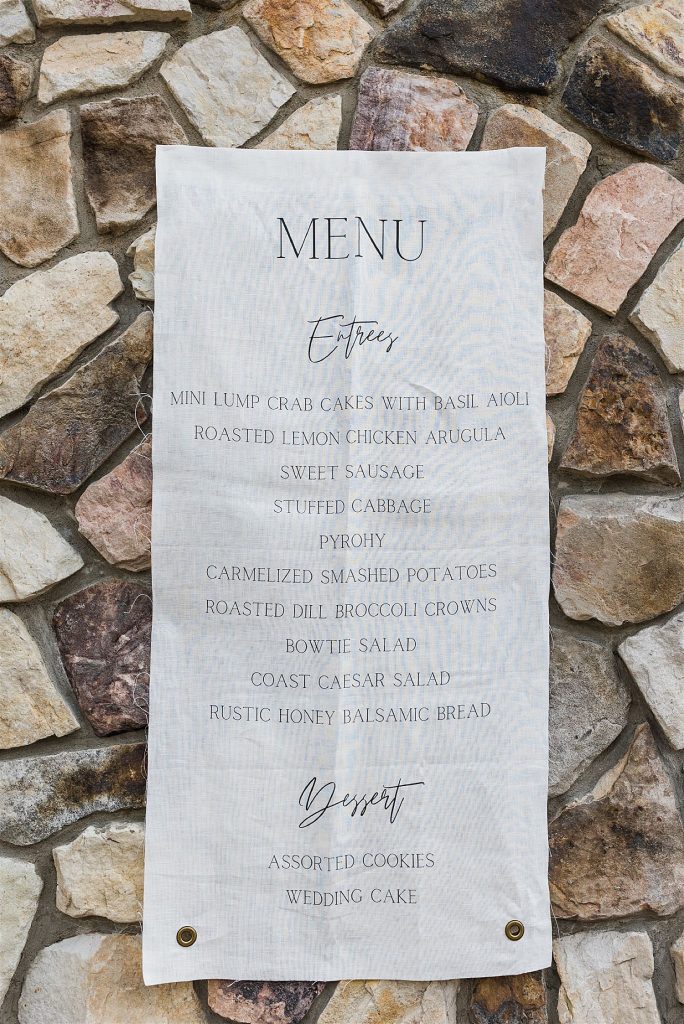 MENU
Entrees
MINI LUMP CRAB CAKES WITH BASIL AIOLI
ROASTED LEMON CHICKEN ARUGULA
SWEET SAUSAGE
STUFFED CABBAGE
PYROHY
CARMELIZED SMASHED POTATOES
ROASTED DILL BROCCOLI CROWNS
BOWTIE SALAD
COAST CAESAR SALAD
RUSTIC HONEY BALSAMIC BREAD
Dessert
ASSORTED COOKIES
WEDDING CAKE